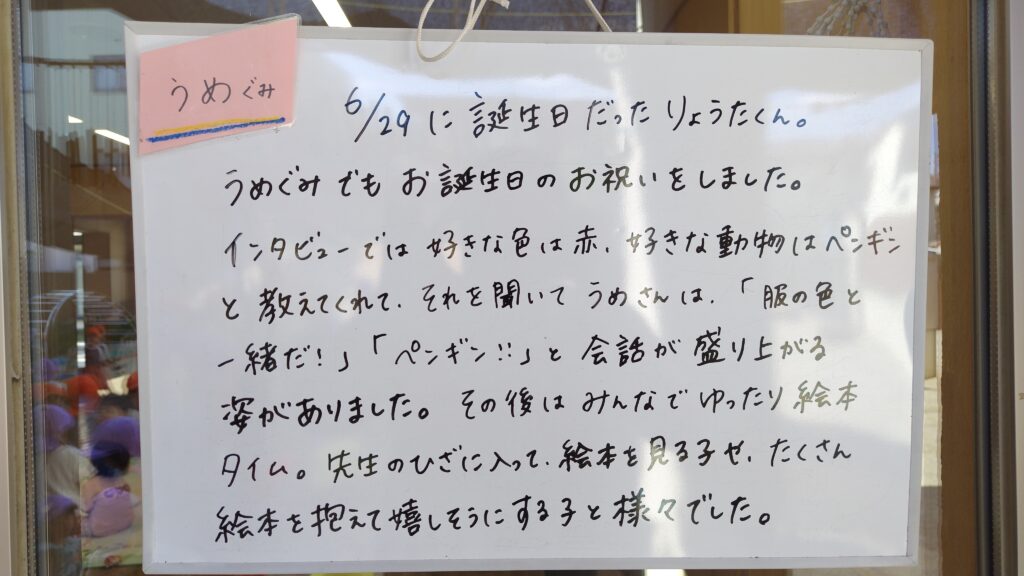 うめぐみ
6/29 に 誕生日 だった りょうたくん。
うめぐみ でも お誕生日の お祝いをしました。
インタビューでは 好きな色は赤、好きな動物はペンギン
と 教えてくれて、それを聞いて うめさんは、「服の色と
一緒だ!」「ペンギン!!」と 会話が 盛り上がる
姿がありました。その後は みんなで ゆったり 絵本
タイム。先生のひざに入って、絵本を見る子や、たくさん
絵本を抱えて嬉しそうにする子と様々でした。